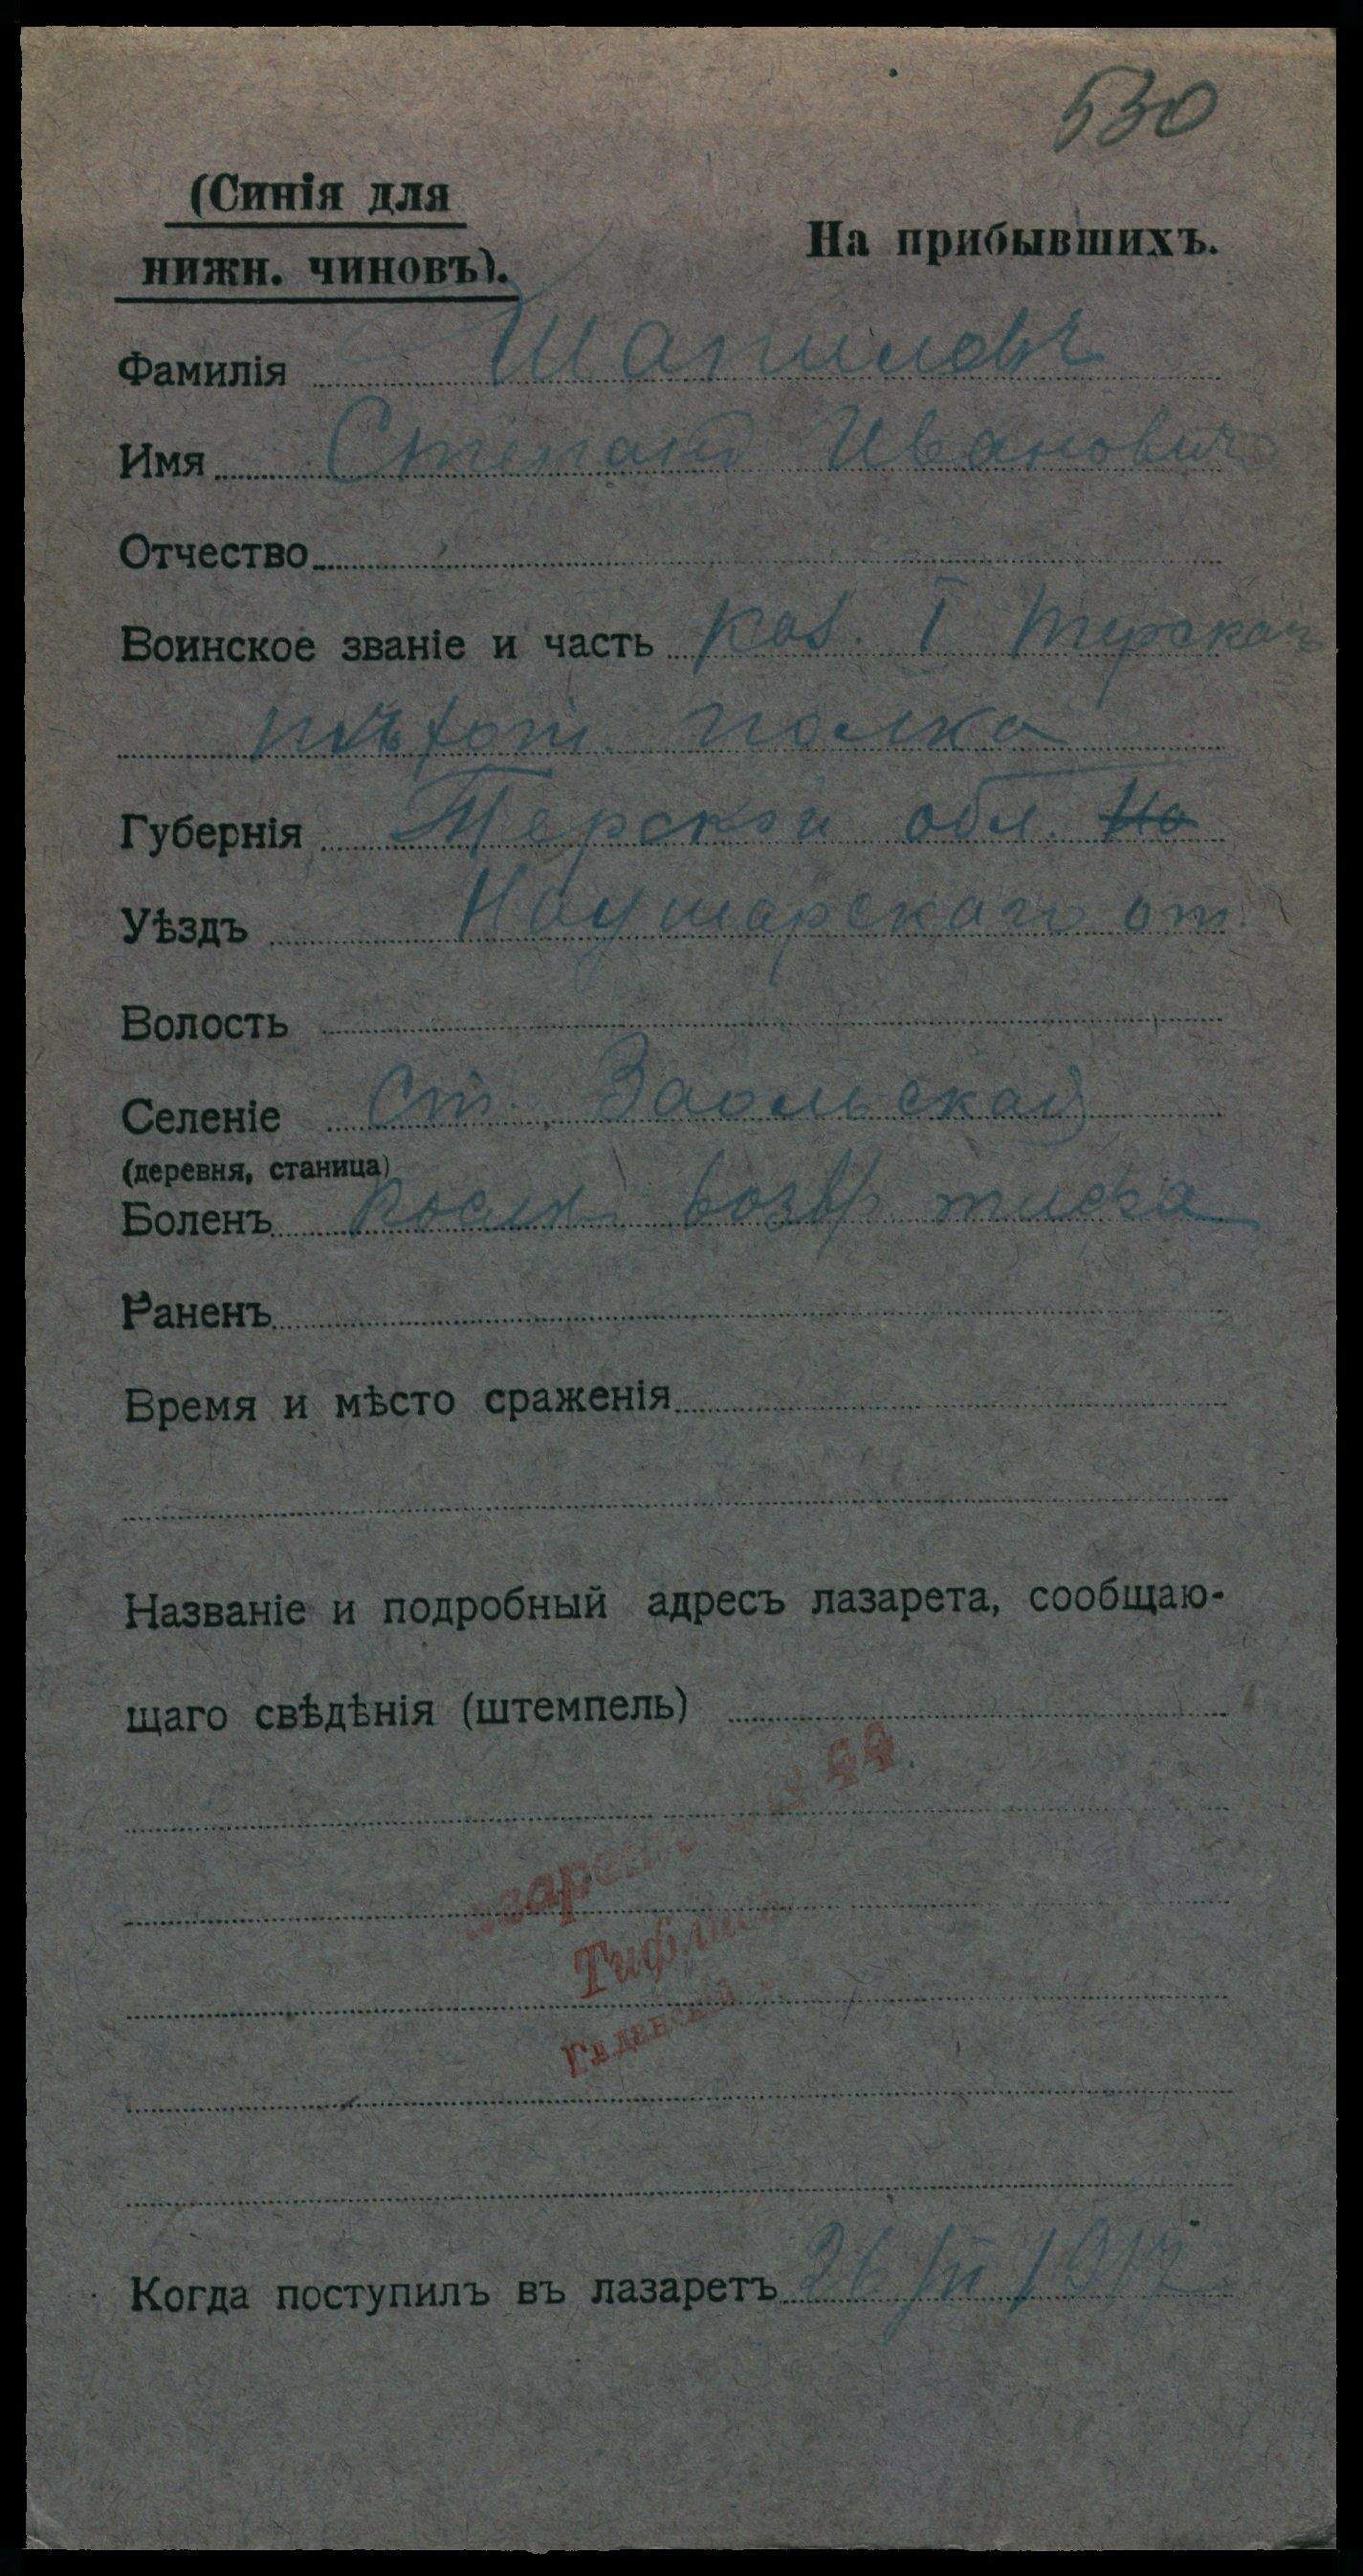 530
(Синія для
нижн. чиновъ).
На прибывшихъ.
Фамилія Шапиловъ
Имя Степанъ Ивановичъ
Отчество
Воинское званіе и часть Каз. I
полка
Губернія Терской обл. Но
Уѣздъ от.
Волость
Селеніе Ст.
(деревня, станица)
Боленъ возвр. тифа
Раненъ
Время и мѣсто сраженія
Названіе и подробный адресъ лазарета, сообщаю-
щаго свѣдѣнія (штемпель)
Тифлисъ
Когда поступилъ въ лазаретъ